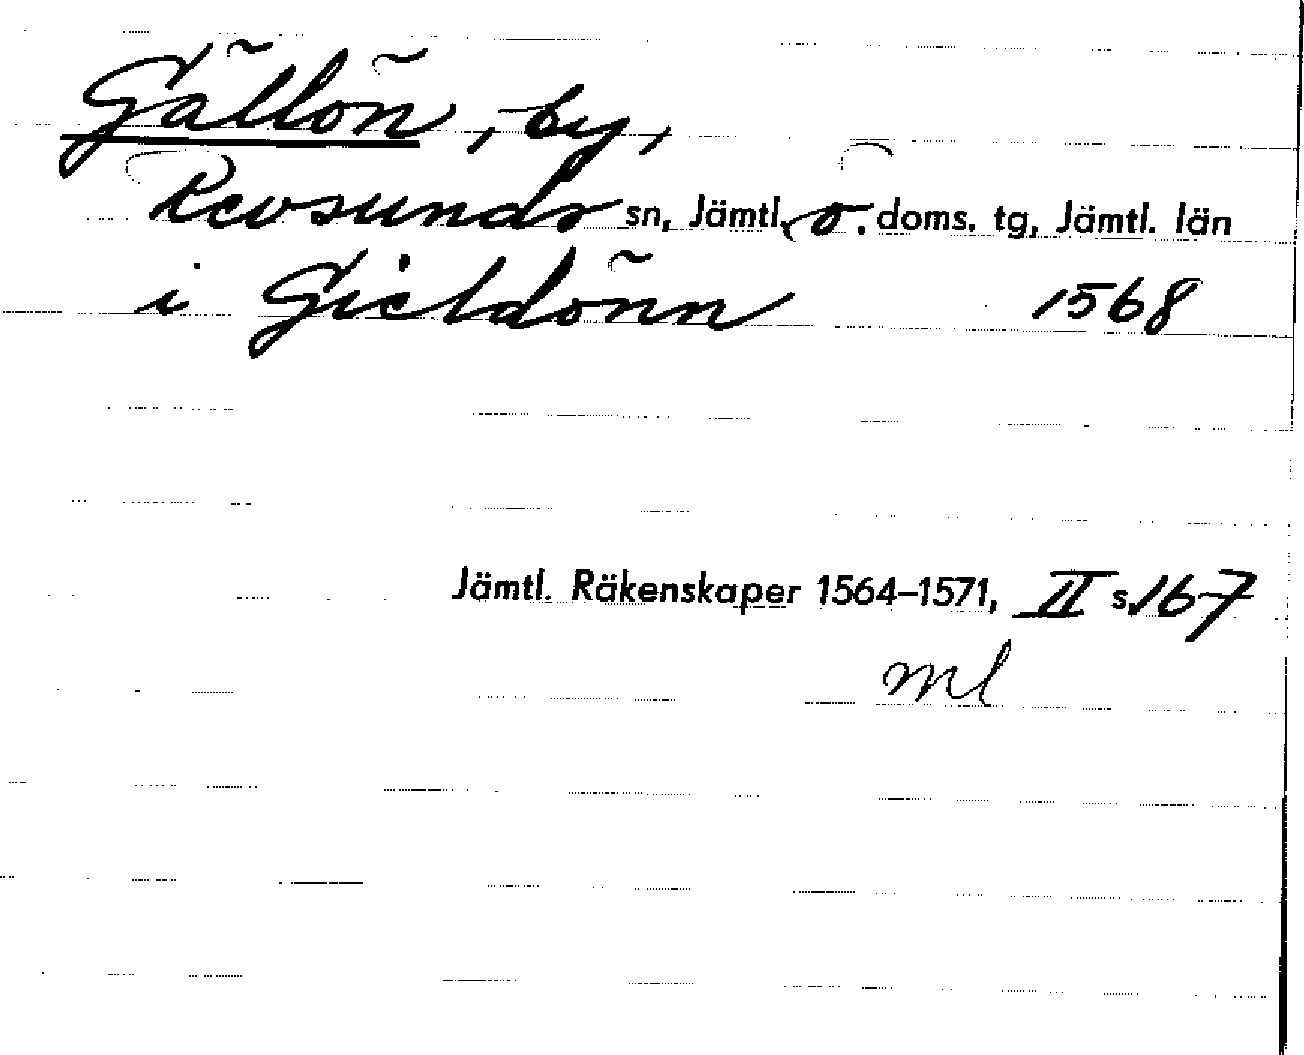 Gällön, by,
Revsunds sn, Jämtl. ö. doms. tg, Jämtl. län
i Gieldönn 1568
Jämtl. Räkenskaper 1564–1571, II s. 167
ml